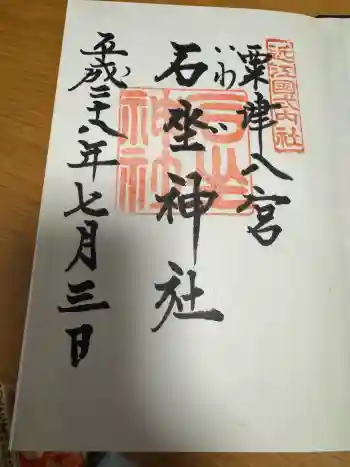 近江國式内社
粟津八宮
いわ
ざ
石坐神社
石坐神社
平成二十八年七月三日